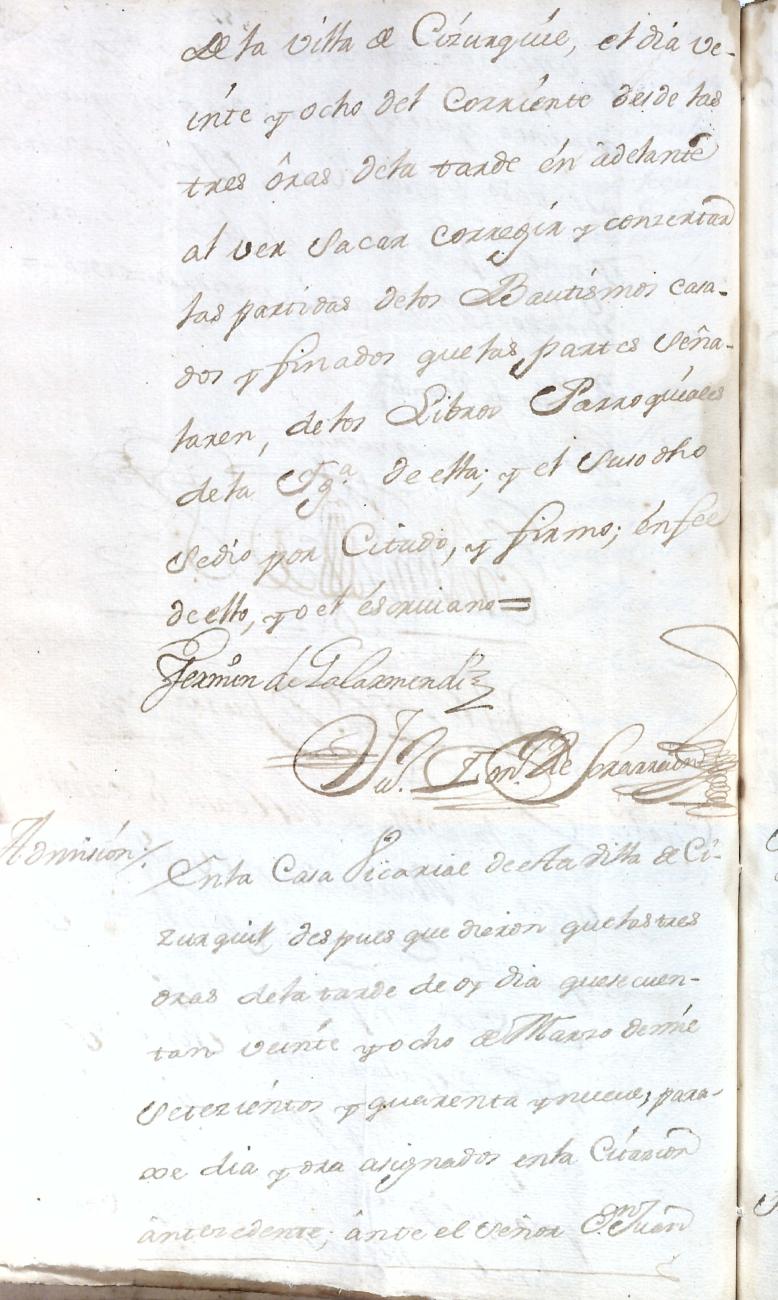 de la villa de Cizurquíe, el dia ve-
ínte y ocho del Corriénte desde las
tres ôras dela tarde én âdelante
al ver sacar corregír y conzertar
las partidas delos Bautísmos casa-
dos y finados que las partes seña-
laren, delos Libros Parroquíales
dela Yg.ª de ella; y el suso dho
sedío por Citado, y firmo; énfee
de ello, yo el éscriuano =
Fermin de Galarmendi
Ju.
Admisíon /. En la Casa Vicarial de esta villa de Ci-
zurquil, despues que dieron que las tres
oras dela tarde de oy dia que se cuen-
tan veínte y ocho de Marzo de míe
setezíentos y quarenta y nueue, para-
xe dia y ora asignados en la Cítazíon
ântezedente; ânte el señor D.n Juan